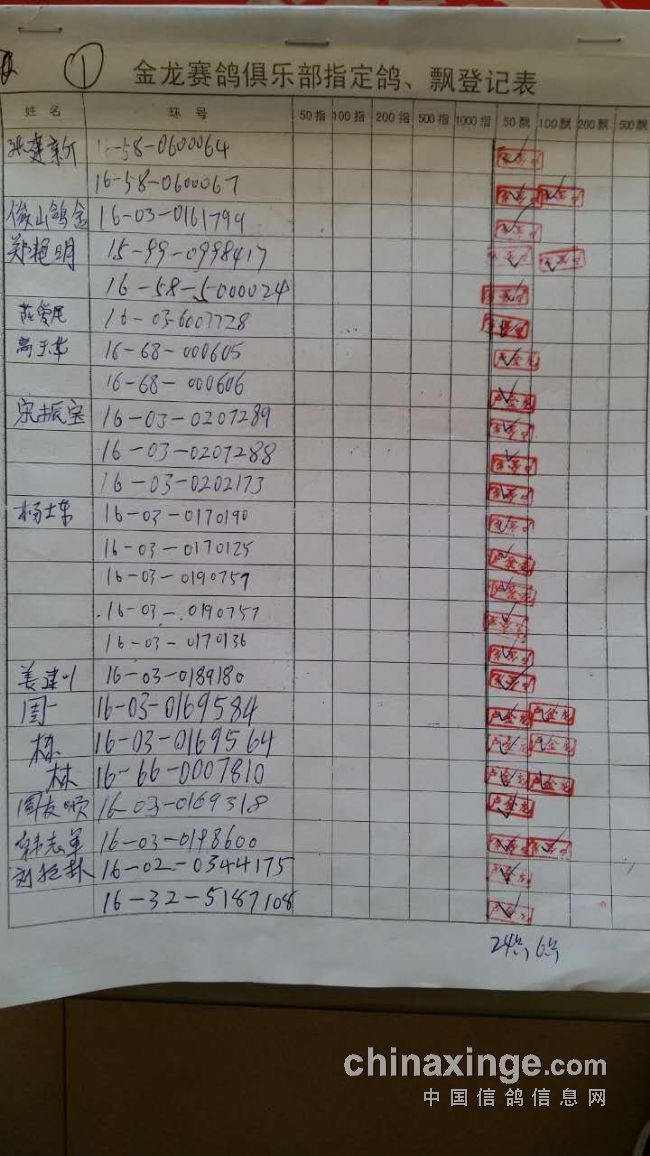 ①
金龙赛鸽俱乐部指定鸽、飘登记表
姓名 环号 50指 100指 200指 500指 1000指 50飘 100飘 200飘 500飘
16-58-0600064
16-58-0600067
俊山鸽舍 16-03-0161799
郑艳明 15-99-0998417
16-58-5000024
16-03-6007728
高玉华 16-68-000605
16-68-000606
宋振宝 16-03-0207289
16-03-0207288
16-03-0202173
杨士东 16-03-0170190
16-03-0170125
16-03-0190759
16-03-0190757
16-03-0170136
姜建川 16-03-0189180
周一 16-03-0169584
栋 16-03-0169564
林 16-66-0007810
周友顺 16-03-0169318
韩志军 16-03-0198600
16-02-0344175
16-32-5187108
24只, 6只
chinaxinge.com
中国信鸽信息网